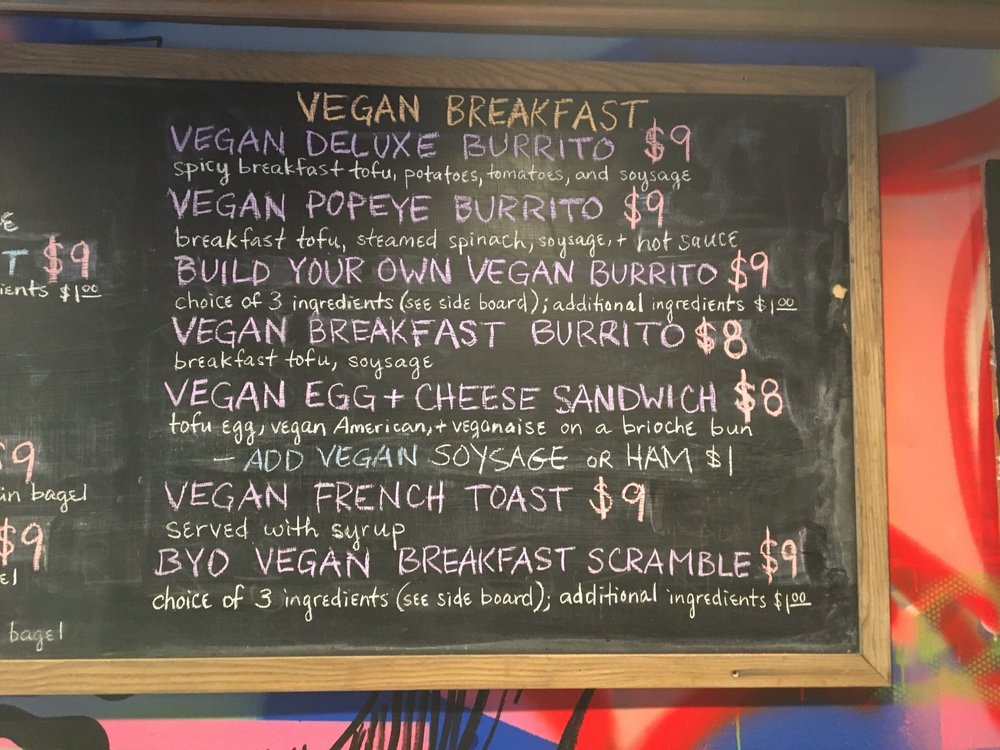 VEGAN BREAKFAST
VEGAN DELUXE BURRITO $9
spicy breakfast tofu, potatoes, tomatoes, and soysage
VEGAN POPEYE BURRITO $9
breakfast tofu, steamed spinach, soysage, + hot sauce
BUILD YOUR OWN VEGAN BURRITO $9
choice of 3 ingredients (see side board); additional ingredients $1.00
VEGAN BREAKFAST BURRITO $8
breakfast tofu, soysage
VEGAN EGG + CHEESE SANDWICH $8
tofu egg, vegan American, + veganaise on a brioche bun
- ADD VEGAN SOYSAGE OR HAM $1
VEGAN FRENCH TOAST $9
served with syrup
BYO VEGAN BREAKFAST SCRAMBLE $9
choice of 3 ingredients (see side board); additional ingredients $1.00
T $9
$1.00
$9
bagel
$9
bagel